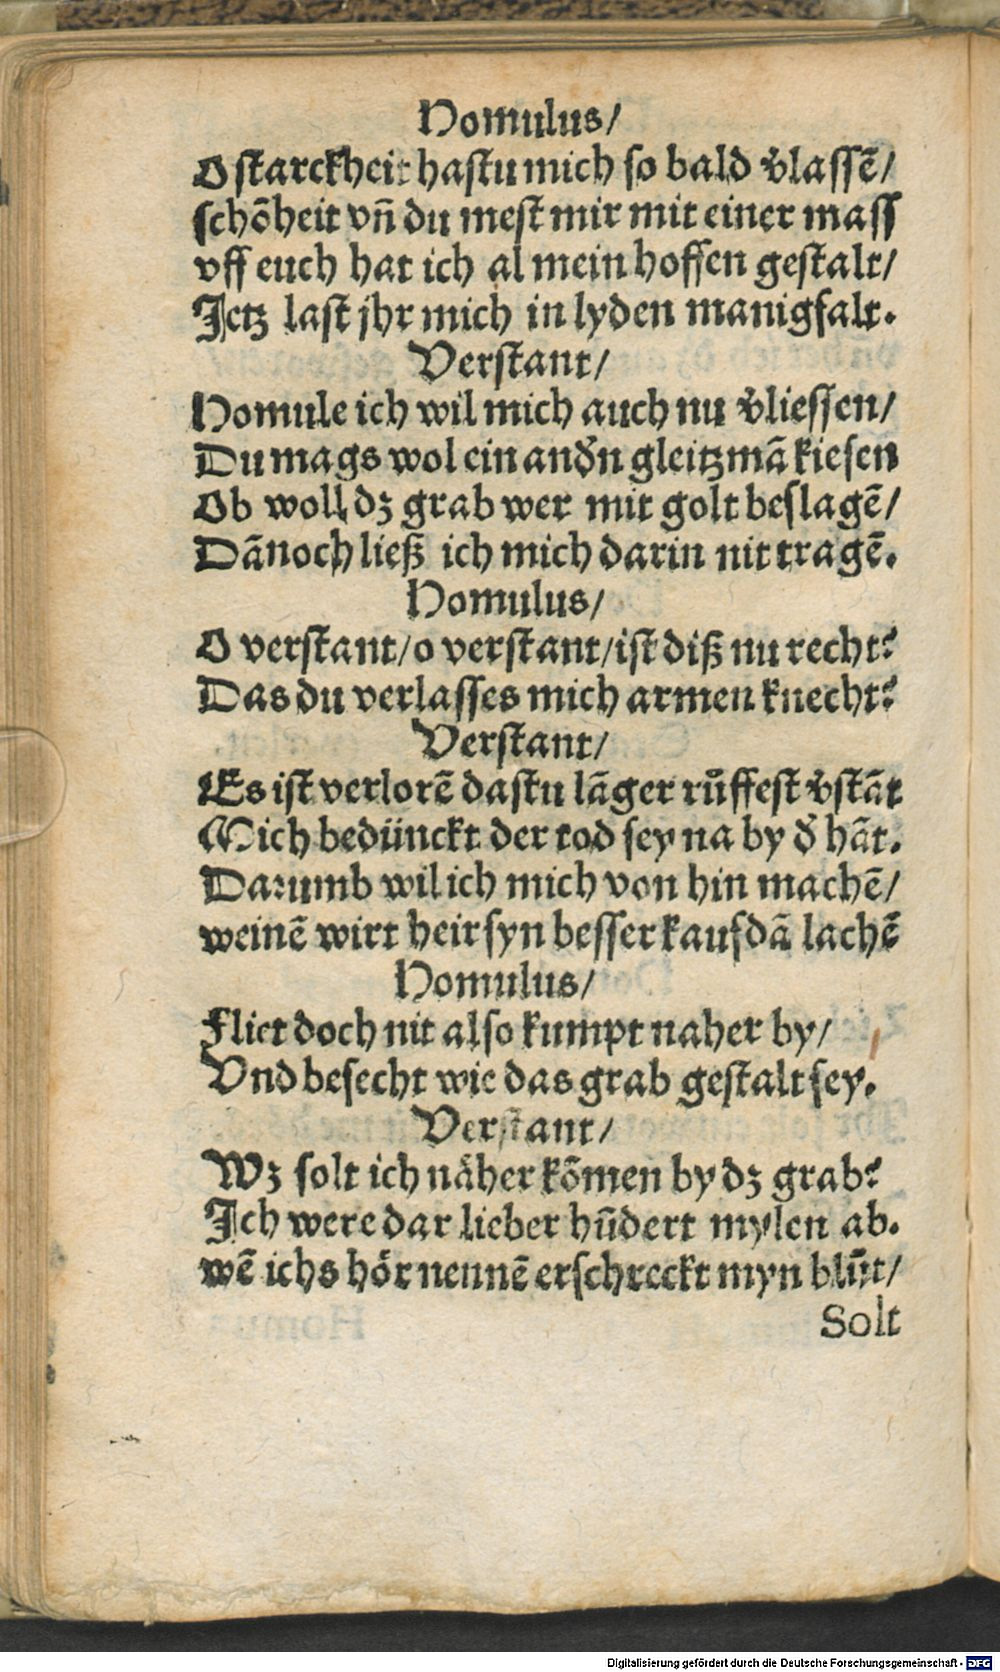 Homulus/
O starckheit hastu mich so bald v̄lassē/
schōheit vn̄ du mest mir mit einer mass
vff euch hat ich al mein hoffen gestalt/
Jetz last jhr mich in lyden manigfalt.
Verstant/
Homule ich wil mich auch nu v̄liessen/
Du mags wol ein and̄n gleitzmā kiesen
Ob woll dz grab wer mit golt beslagē/
Dānoch ließ ich mich darin nit tragē.
Homulus/
O verstant/o verstant/ist diß nu recht?
Das du verlasses mich armen knecht?
Verstant/
Es ist verlorē dastu lāger růffest v̄stāt
Mich bedünckt der tod sey na by d̄ hāt.
Darumb wil ich mich von hin machē/
weinē wirt heir syn besser kauf dā lachē
Homulus/
Fliet doch nit also kumpt naher by/
Vnd besecht wie das grab gestalt sey.
Verstant/
Wz solt ich näher kōmen by dz grab?
Ich were dar lieber hūdert mylen ab.
wē ichs hör nennē erschreckt myn blůt/
Solt
Digitalisierung gefördert durch die Deutsche Forschungsgemeinschaft - DFG